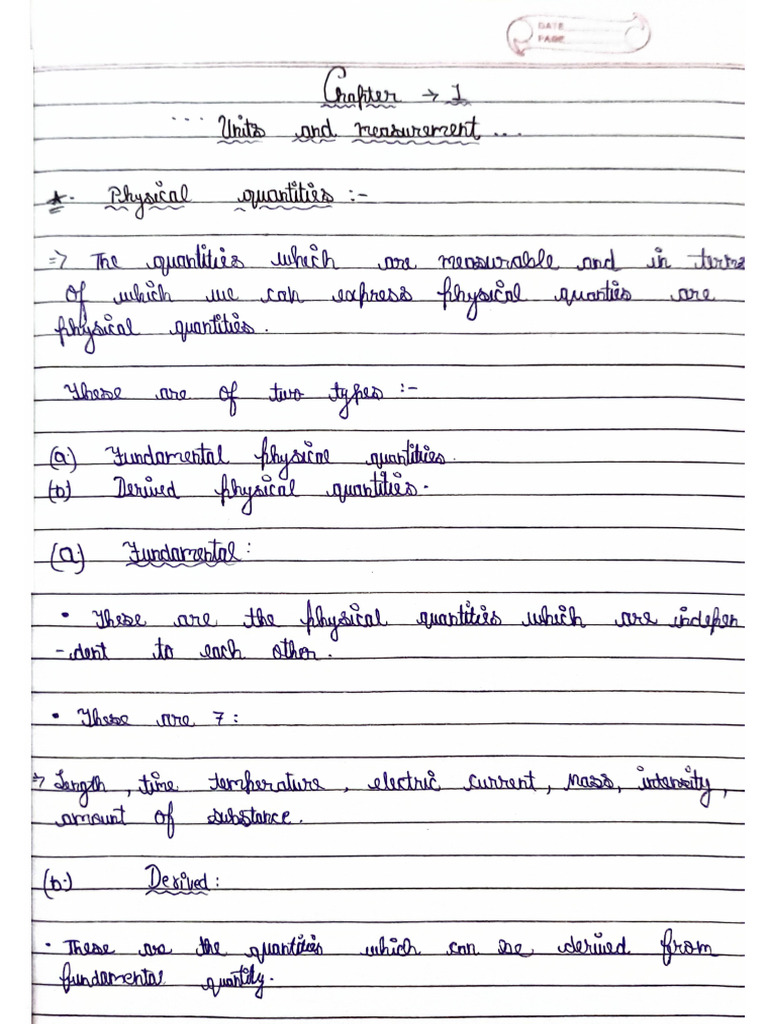 DATE
PAGE
Chapter → 1
Units and measurement ...
* Physical quantities :-
=> The quantities which are measurable and in terms
of which we can express physical quanties are
physical quantities.
These are of two types :-
(a) Fundamental physical quantities.
(b) Derived physical quantities.
(a) Fundamental :
• These are the physical quantities which are indepen
-dent to each other.
• These are 7 :
=> Length , time temperature , electric current , mass, intensity ,
amount of substance .
(b.) Derived :
• These are the quantities which can be derived from
fundamental quantity.